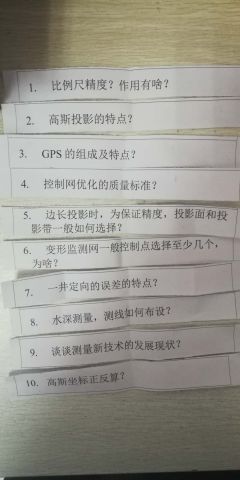 1. 比例尺精度?作用有啥?
2. 高斯投影的特点?
3. GPS 的组成及特点?
4. 控制网优化的质量标准?
5. 边长投影时,为保证精度,投影面和投
影带一般如何选择?
6. 变形监测网一般控制点选择至少几个,
为啥?
7. 一井定向的误差的特点?
8. 水深测量,测线如何布设?
9. 谈谈测量新技术的发展现状?
10. 高斯坐标正反算?